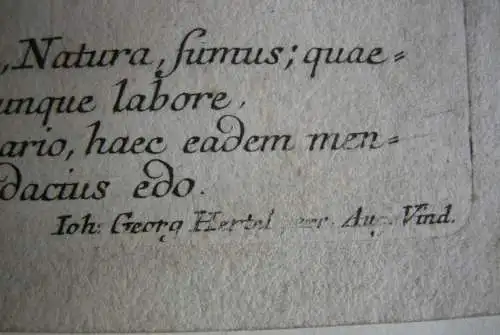 , Natura, sumus; quae=
unque labore,
ario, haec eadem men=
dacius edo.
Ioh: Georg Hertel exc. Aug. Vind.